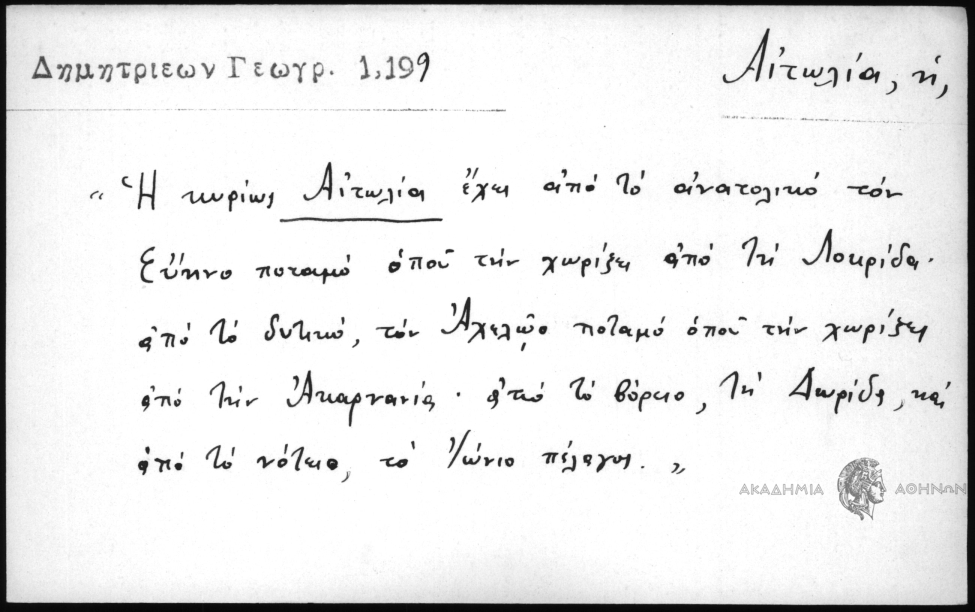 Δημητριεων Γεωγρ. 1,199
Αἰτωλία, ἡ,
“Ἡ κυρίως Αἰτωλία ἔχει ἀπό τό ἀνατολικό τόν
Εὔηνο ποταμό ὁποῦ τήν χωρίζει ἀπό τή Λοκρίδα·
ἀπό τό δυτικό, τόν Ἀχελῶο ποταμό ὁποῦ τήν χωρίζει
ἀπό τήν Ἀκαρνανία· ἀπό τό βόρειο, τή Δωρίδα, καί
ἀπό τό νότειο, τό Ἰώνιο πέλαγος.„
ΑΚΑΔΗΜΙΑ ΑΘΗΝΩΝ